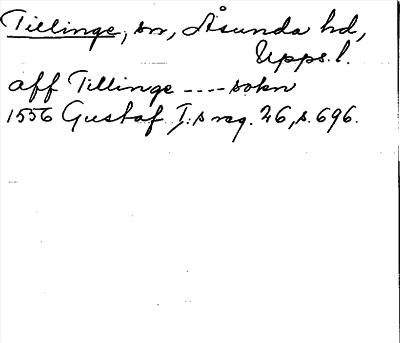 Tillinge, sn, Åsunda hd,
Upps. l.
aff Tillinge ---- sokn
1556 Gustaf I:s reg. 26, s. 696.